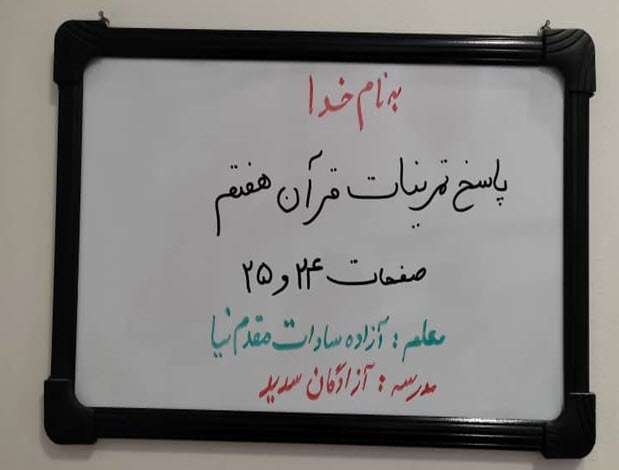 به نام خدا
پاسخ تمرینات قرآن هفتم
صفحات ۲۴ و ۲۵
معلم : آزاده سادات مقدم نیا
مدرسه : آزادگان سدید